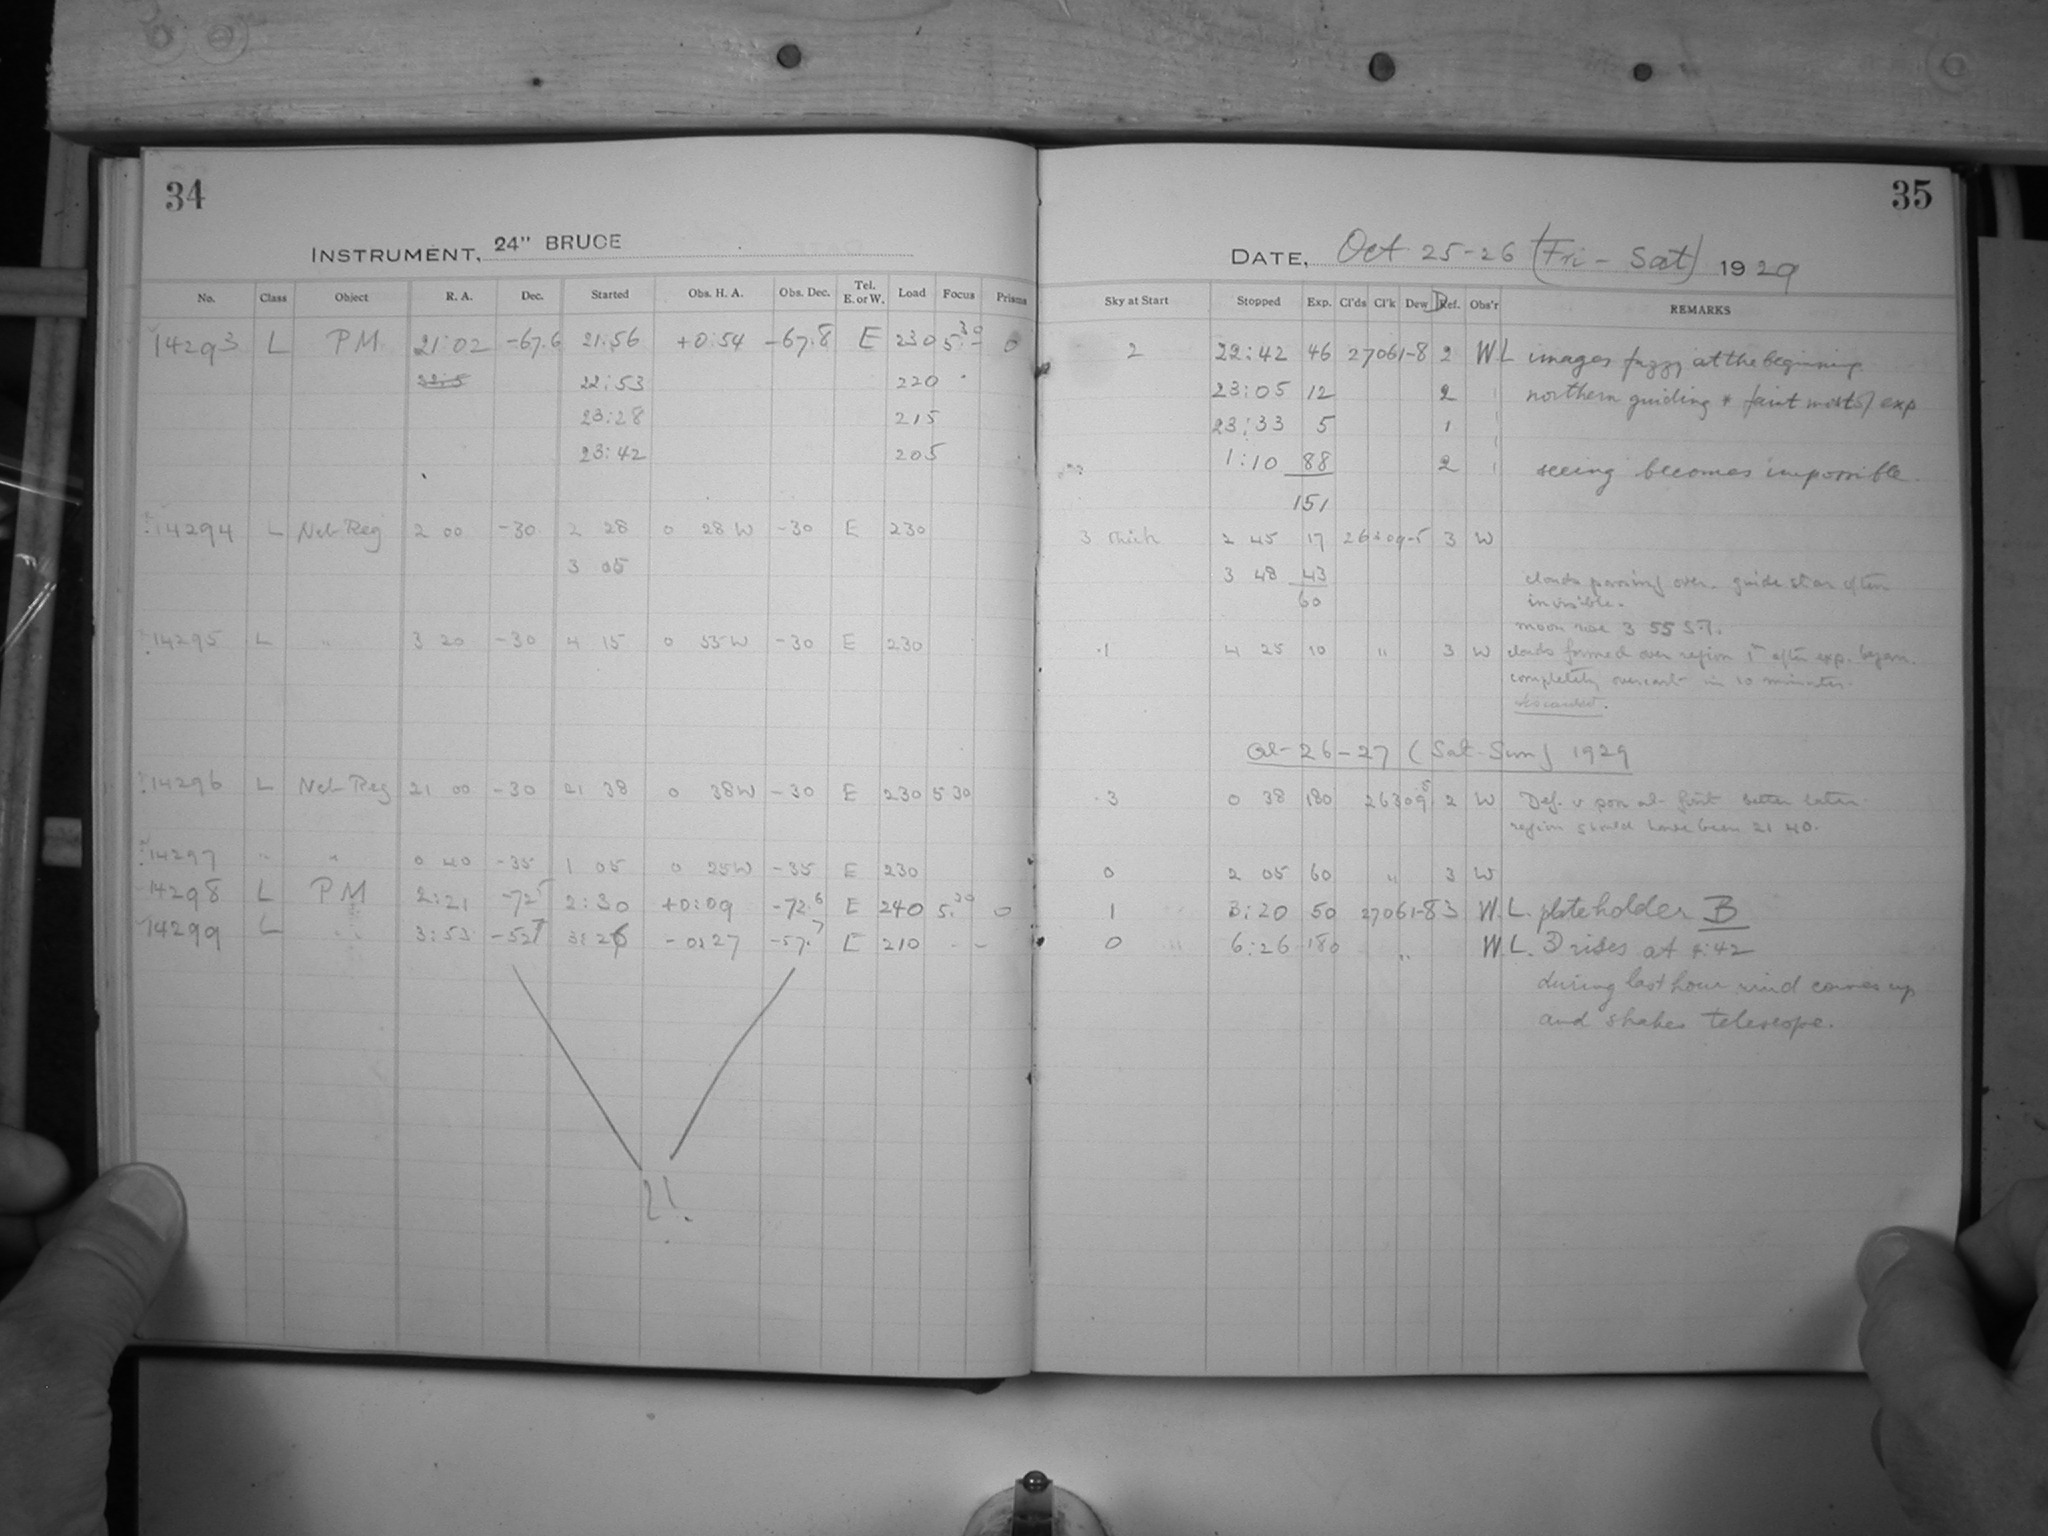 34
INSTRUMENT, 24" BRUCE
No. Class Object R. A. Dec. Started Obs. H. A. Obs. Dec. Tel. E. or W. Load Focus Prisms
14293 L PM 21:02 -67.6 21:56 +0:54 -67.8 E 230 5.30 0
22:53 220
23:28 215
23:42 205
14294 L Neb Reg 2 00 -30 2 28 0 28 W -30 E 230
3 05
14295 L " 3 20 -30 4 15 0 55 W -30 E 230
14296 L Neb Reg 21 00 -30 21 38 0 38 W -30 E 230 5 30
14297 " " 0 40 -35 1 05 0 25 W -35 E 230
14298 L PM 2:21 -72.5 2:30 +0:09 -72.6 E 240 5.30 0
14299 L " 3:53 3:26 -0:27 -57.7 E 210 - -
?!.
35
DATE, Oct 25-26 (Fri - Sat) 1929
Sky at Start Stopped Exp. Cl'ds Cl'k Dew Def. Obs'r REMARKS
2 22:42 46 27061-8 2 WL images fuzzy at the beginning
23:05 12 2 northern guiding * faint exp
23:33 5 1
1:10 88 2 seeing becomes impossible.
151
3 thick 2 45 17 26309-5 3 W
3 48 43 clouds passing over - guide star often
60 invisible.
moon rose 3 55 S.T.
1 4 25 10 " 3 W clouds formed over region 1m after exp. began.
completely overcast in 10 minutes.
Discarded.
Oct-26-27 (Sat-Sun) 1929
3 0 38 180 26309-5 2 W Def. v poor at first better later
region should have been 21 40.
0 2 05 60 " 3 W
1 3:20 50 27061-8 3 W.L. plateholder B
0 6:26 180 " W.L. rises at 4:42
during last hour wind comes up
and shakes telescope.